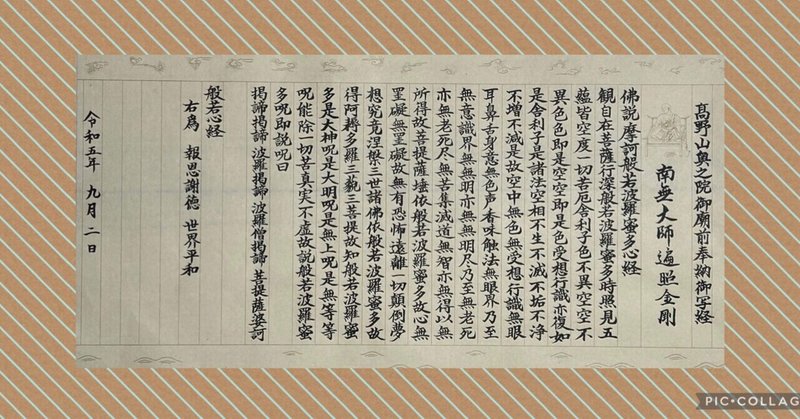 高野山奥之院御廟前奉納御写経
南無大師遍照金剛
佛説摩訶般若波羅蜜多心経
観自在菩薩行深般若波羅蜜多時照見五
蘊皆空度一切苦厄舎利子色不異空空不
異色色即是空空即是色受想行識亦復如
是舎利子是諸法空相不生不滅不垢不浄
不増不減是故空中無色無受想行識無眼
耳鼻舌身意無色声香味触法無眼界乃至
無意識界無無明亦無無明尽乃至無老死
亦無老死尽無苦集滅道無智亦無得以無
所得故菩提薩埵依般若波羅蜜多故心無
罣礙無罣礙故無有恐怖遠離一切顛倒夢
想究竟涅般三世諸佛依般若波羅蜜多故
得阿耨多羅三藐三菩提故知般若波羅蜜
多是大神呪是大明呪是無上呪是無等等
呪能除一切苦真実不虚故説般若波羅蜜
多呪即説呪曰
掲諦掲諦 波羅掲諦 波羅僧掲諦 菩提薩婆訶
般若心経
右為 報恩謝徳 世界平和
令和五年 九月 二日
PIC•COLLAG